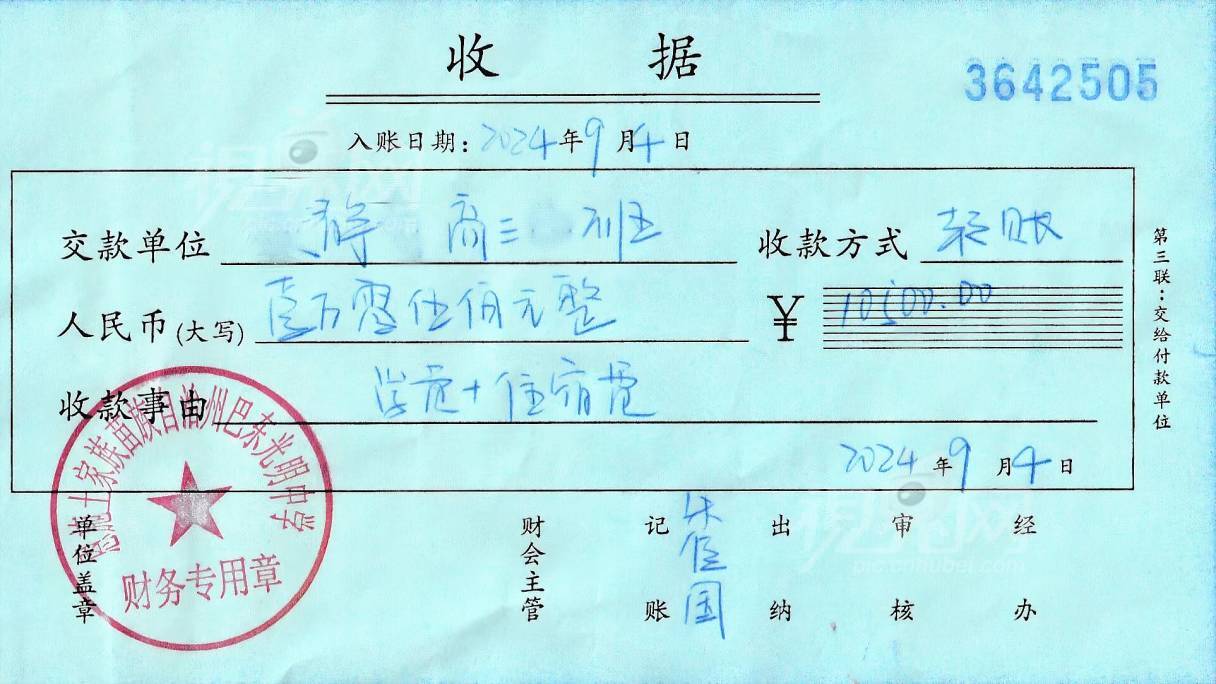 收 据
3642505
入账日期：2024年9月4日
交款单位 静 高三 班 收款方式 转账
人民币(大写) 壹万零伍佰元整 ¥ 10500.00
收款事由 学费+住宿费
2024年9月4日
第三联：交给付款单位
恩施土家族苗族自治州巴东光明中学
财务专用章
单位盖章 财会主管 记账 出纳 审核 经办